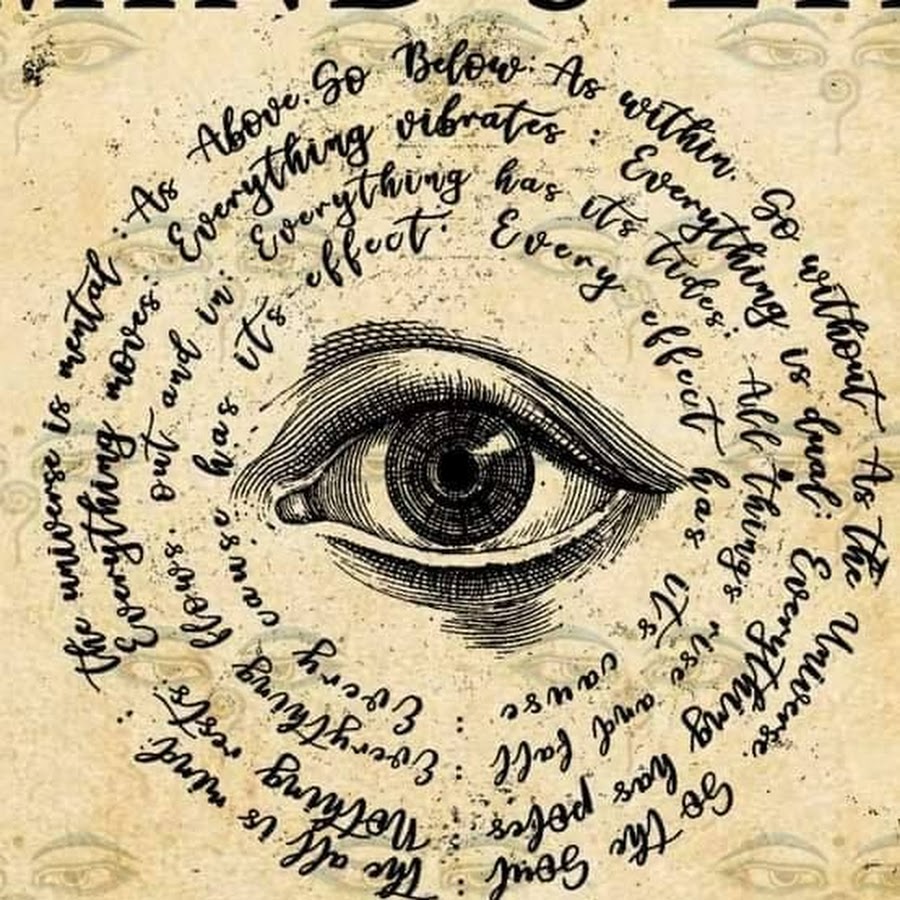 MIND'S EYE
The all is mind. The universe is mental : As Above. So Below : As within. So without. As the Universe. So the Soul :
Nothing rests. Everything moves. Everything vibrates : Everything is dual : Everything has poles :
Everything flows. out and in : Everything has its tides : All things rise and fall :
Every cause has its effect : Every effect has its cause :